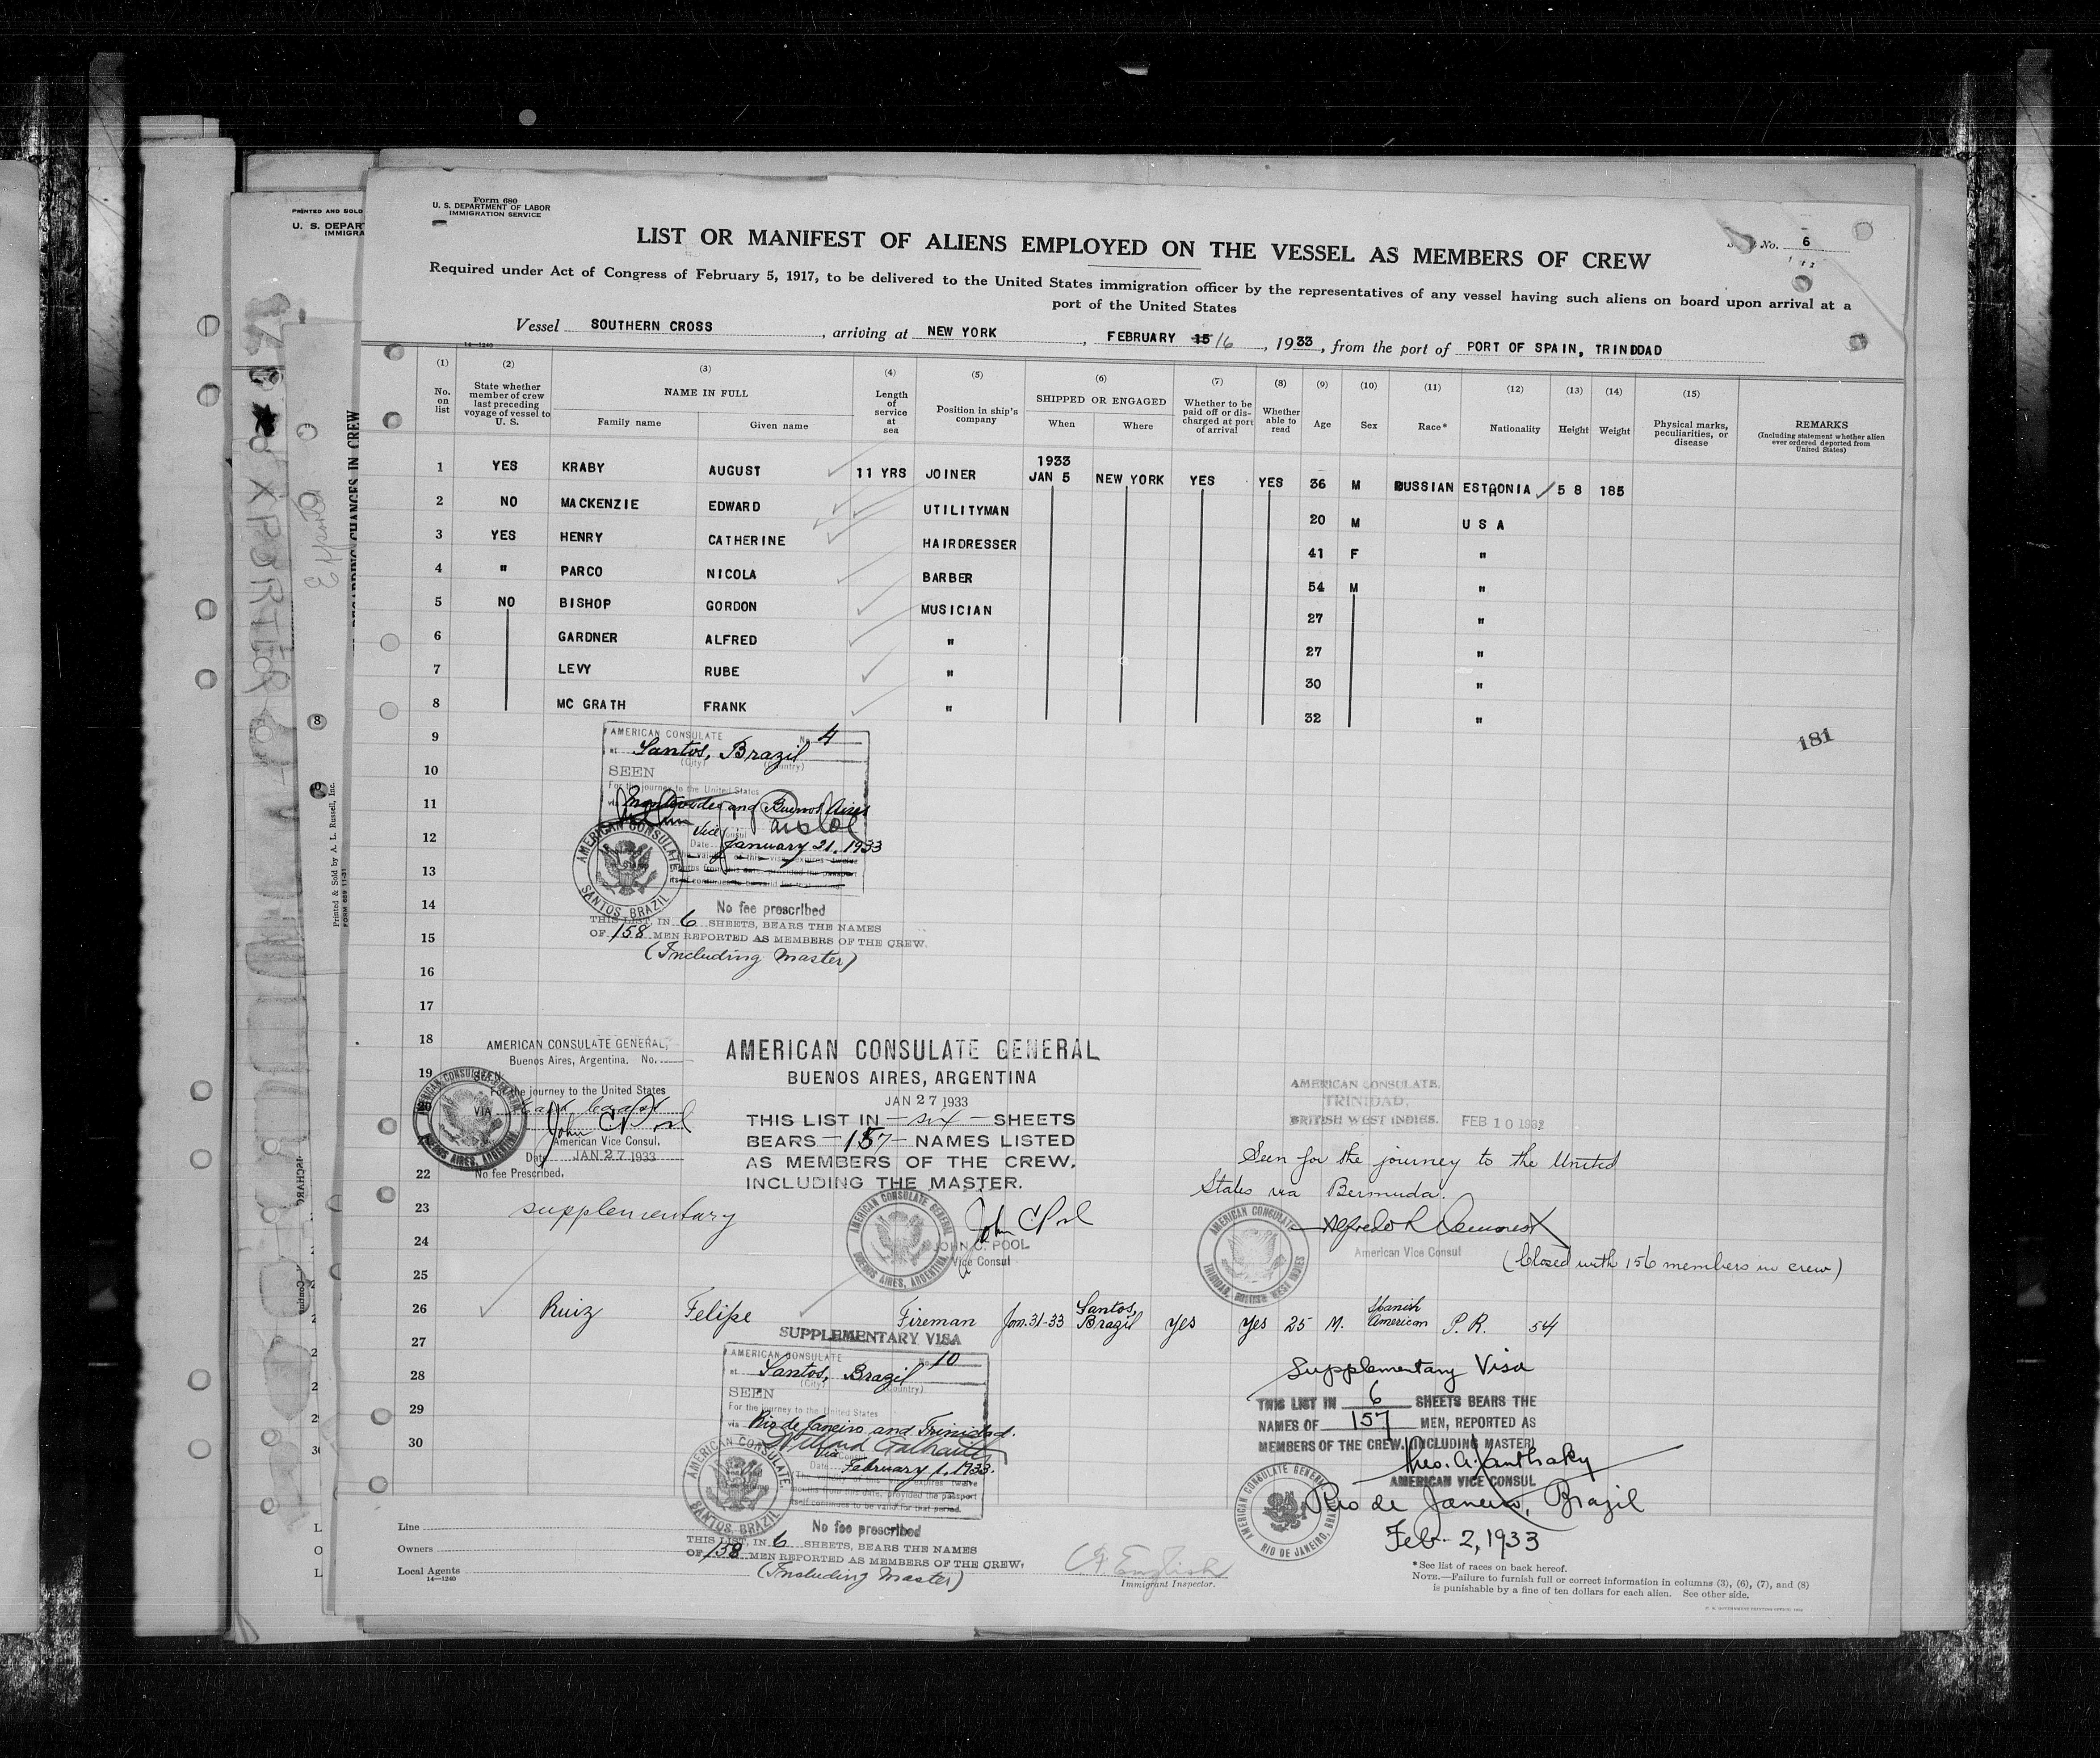 PRINTED AND SOLD
U. S. DEPAR
IMMIGRA
REGARDING CHANGES IN CREW
Printed & Sold by A. L. Russell, Inc.
FORM 689 11-31
Form 680
U. S. DEPARTMENT OF LABOR
IMMIGRATION SERVICE
LIST OR MANIFEST OF ALIENS EMPLOYED ON THE VESSEL AS MEMBERS OF CREW
No. 6
Required under Act of Congress of February 5, 1917, to be delivered to the United States immigration officer by the representatives of any vessel having such aliens on board upon arrival at a
port of the United States
Vessel SOUTHERN CROSS, arriving at NEW YORK, FEBRUARY 15 16, 1933, from the port of PORT OF SPAIN, TRINDDAD
14—1240
(1) (2) (3) (4) (5) (6) (7) (8) (9) (10) (11) (12) (13) (14) (15)
No. on list
State whether member of crew last preceding voyage of vessel to U. S.
NAME IN FULL
Family name Given name
Length of service at sea
Position in ship's company
SHIPPED OR ENGAGED
When Where
Whether to be paid off or discharged at port of arrival
Whether able to read
Age Sex Race* Nationality Height Weight
Physical marks, peculiarities, or disease
REMARKS
(Including statement whether alien ever ordered deported from United States)
1 YES KRABY AUGUST 11 YRS JOINER 1933 JAN 5 NEW YORK YES YES 36 M RUSSIAN ESTHONIA 5 8 185
2 NO MACKENZIE EDWARD UTILITYMAN 20 M U S A
3 YES HENRY CATHERINE HAIRDRESSER 41 F "
4 " PARCO NICOLA BARBER 54 M "
5 NO BISHOP GORDON MUSICIAN 27 "
6 GARDNER ALFRED " 27 "
7 LEVY RUBE " 30 "
8 MC GRATH FRANK " 32 "
9
10
11
12
13
14
15
16
17
18
19
22
23
24
25
181
AMERICAN CONSULATE No. 4
at Santos, Brazil
(City) (Country)
SEEN
For the journey to the United States
via Montevideo and Buenos Aires
Vice Consul
Date January 21, 1933
AMERICAN CONSULATE
SANTOS, BRAZIL
No fee prescribed
THIS LIST, IN 6 SHEETS, BEARS THE NAMES
OF 158 MEN REPORTED AS MEMBERS OF THE CREW.
(Including Master)
AMERICAN CONSULATE GENERAL,
Buenos Aires, Argentina. No.
SEEN
For the journey to the United States
VIA
John C Pool
American Vice Consul.
Date JAN 27 1933
No fee Prescribed.
supplementary
AMERICAN CONSULATE GENERAL
BUENOS AIRES, ARGENTINA
JAN 27 1933
THIS LIST IN —six— SHEETS
BEARS —157— NAMES LISTED
AS MEMBERS OF THE CREW,
INCLUDING THE MASTER.
John C Pool
JOHN C. POOL
Vice Consul
AMERICAN CONSULATE GENERAL
BUENOS AIRES, ARGENTINA
AMERICAN CONSULATE,
TRINIDAD,
BRITISH WEST INDIES. FEB 10 1933
Seen for the journey to the United
States via Bermuda.
American Vice Consul
(Closed with 156 members in crew)
AMERICAN CONSULATE
TRINIDAD, BRITISH WEST INDIES
26 Ruiz Felipe Fireman Jan. 31-33 Santos, Brazil yes yes 25 M. Spanish American P. R. 54
27
28
29
30
SUPPLEMENTARY VISA
AMERICAN CONSULATE No. 10
at Santos, Brazil
(City) (Country)
SEEN
For the journey to the United States
via Rio de Janeiro and Trinidad.
Vice Consul
Date February 1, 1933.
The validity of this visa expires twelve
months from this date, provided the passport
itself continues to be valid for that period.
AMERICAN CONSULATE
SANTOS, BRAZIL
No fee prescribed
THIS LIST, IN 6 SHEETS, BEARS THE NAMES
OF 158 MEN REPORTED AS MEMBERS OF THE CREW.
(Including Master)
Supplementary Visa
THIS LIST IN 6 SHEETS BEARS THE
NAMES OF 157 MEN, REPORTED AS
MEMBERS OF THE CREW. (INCLUDING MASTER)
Theo. A. Xanthaky
AMERICAN VICE CONSUL
Rio de Janeiro, Brazil
Feb. 2, 1933
AMERICAN CONSULATE GENERAL
RIO DE JANEIRO, BRAZIL
Line
Owners
Local Agents
14—1240
Immigrant Inspector.
*See list of races on back hereof.
NOTE.—Failure to furnish full or correct information in columns (3), (6), (7), and (8)
is punishable by a fine of ten dollars for each alien. See other side.